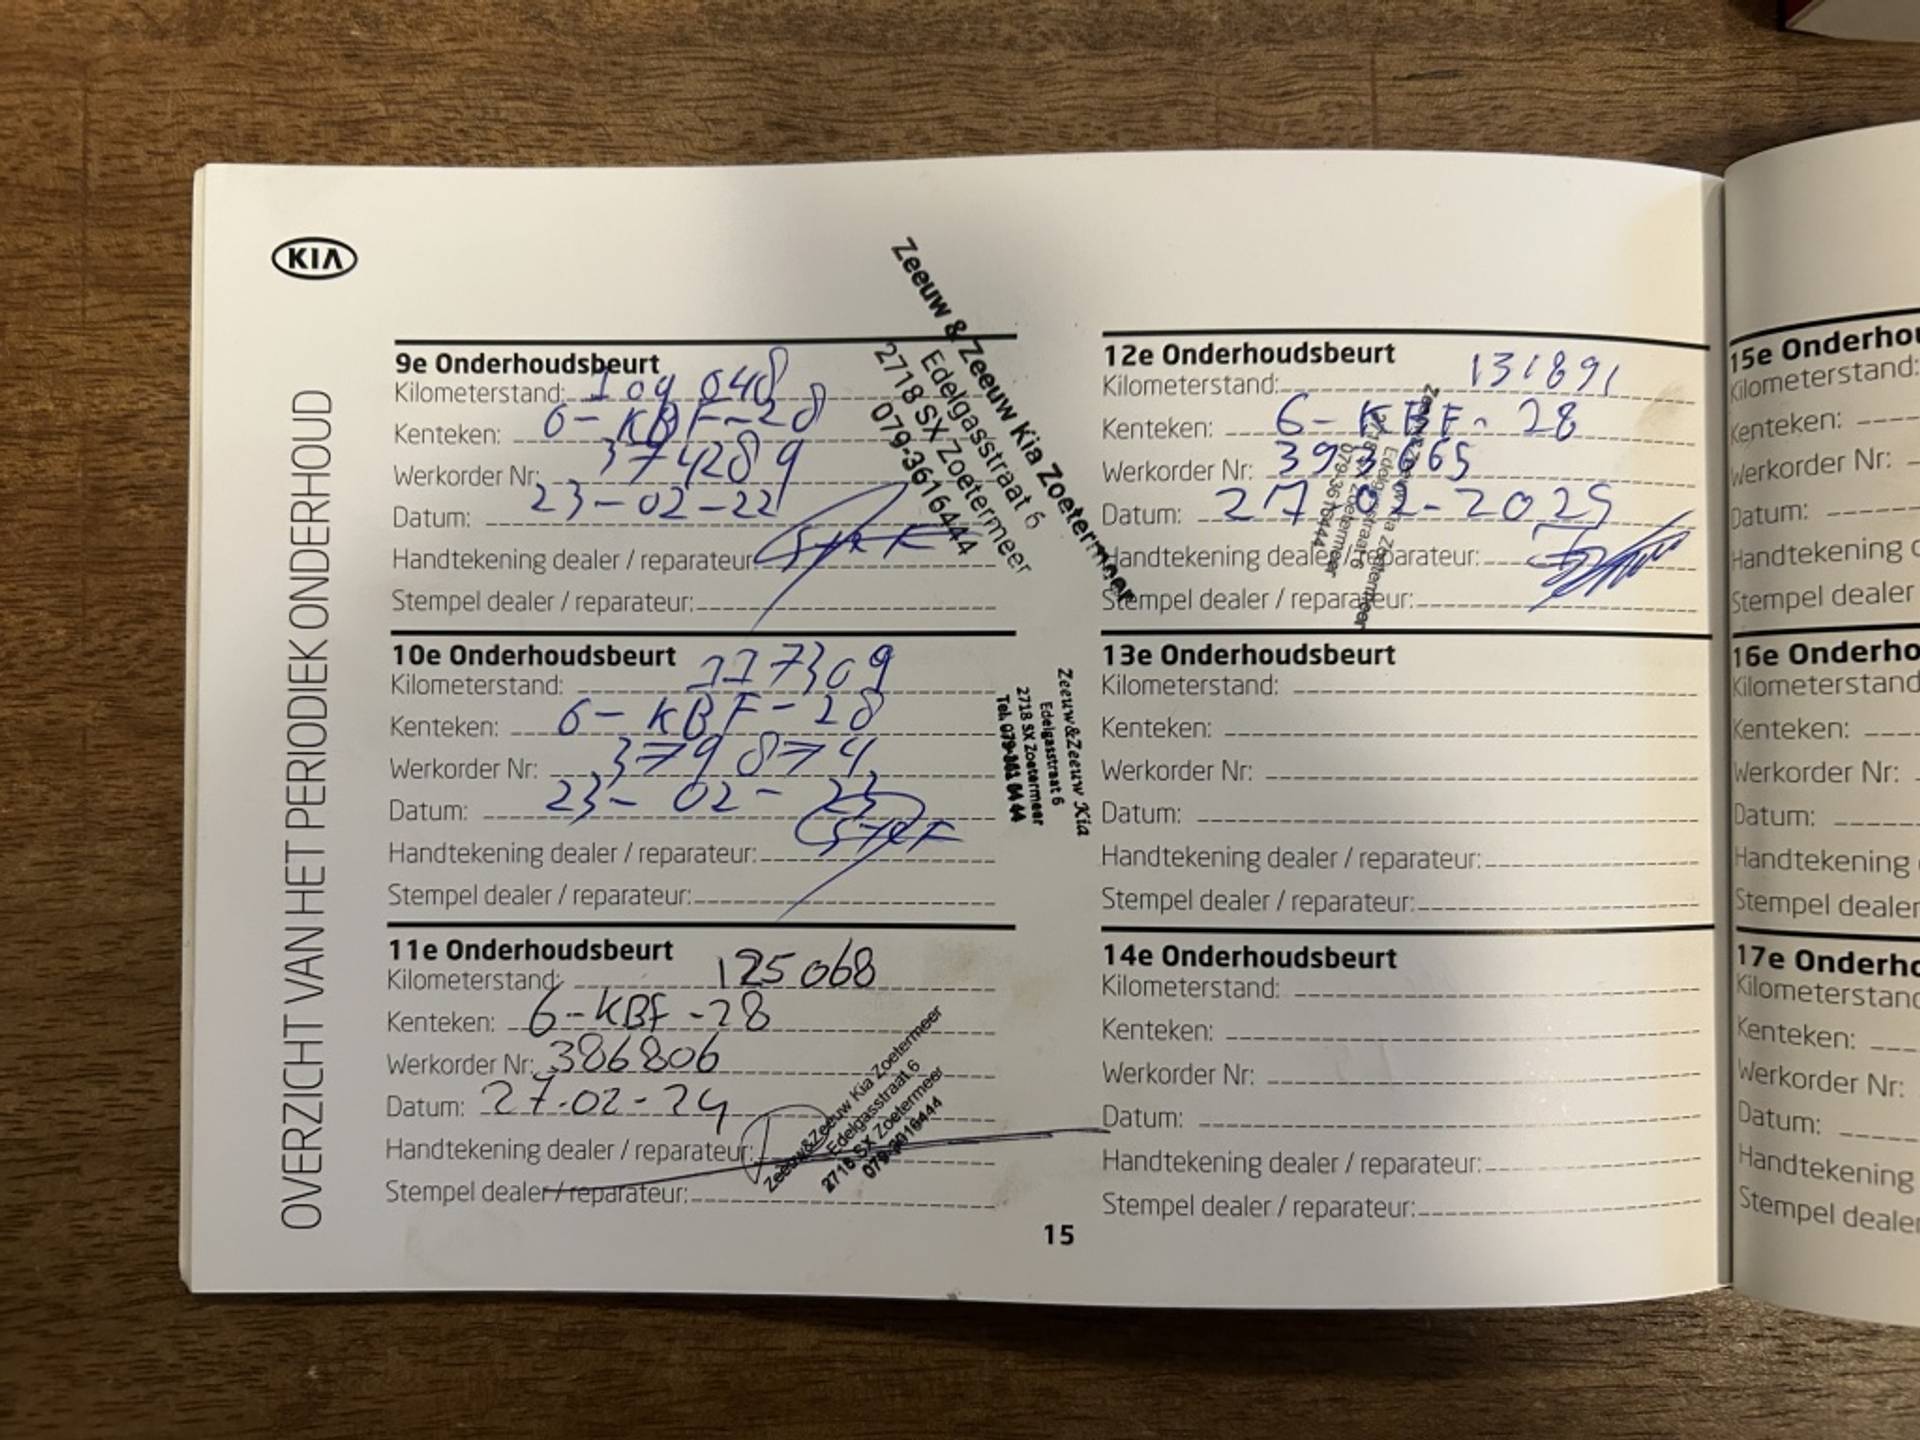 KIA
OVERZICHT VAN HET PERIODIEK ONDERHOUD
9e Onderhoudsbeurt
Kilometerstand: 109 048
Kenteken: 6-KBF-28
Werkorder Nr: 374289
Datum: 23-02-22
Handtekening dealer / reparateur:
Stempel dealer / reparateur:
Zeeuw & Zeeuw Kia Zoetermeer
Edelgasstraat 6
2718 SX Zoetermeer
079-3616444
10e Onderhoudsbeurt
Kilometerstand: 117309
Kenteken: 6-KBF-28
Werkorder Nr: 379874
Datum: 23-02-23
Handtekening dealer / reparateur:
Stempel dealer / reparateur:
Zeeuw&Zeeuw Kia
Edelgasstraat 6
2718 SX Zoetermeer
Tel. 079-361 64 44
11e Onderhoudsbeurt
Kilometerstand: 125068
Kenteken: 6-KBF-28
Werkorder Nr: 386806
Datum: 27-02-24
Handtekening dealer / reparateur:
Stempel dealer / reparateur:
Zeeuw&Zeeuw Kia Zoetermeer
Edelgasstraat 6
2718 SX Zoetermeer
079-3616444
12e Onderhoudsbeurt
Kilometerstand: 131891
Kenteken: 6-KBF-28
Werkorder Nr: 393065
Datum: 27-02-2025
Handtekening dealer / reparateur:
Stempel dealer / reparateur:
Zeeuw&Zeeuw Kia Zoetermeer
Edelgasstraat 6
2718 SX Zoetermeer
079-3616444
13e Onderhoudsbeurt
Kilometerstand:
Kenteken:
Werkorder Nr:
Datum:
Handtekening dealer / reparateur:
Stempel dealer / reparateur:
14e Onderhoudsbeurt
Kilometerstand:
Kenteken:
Werkorder Nr:
Datum:
Handtekening dealer / reparateur:
Stempel dealer / reparateur:
15
15e Onderhou
Kilometerstand:
Kenteken:
Werkorder Nr:
Datum:
Handtekening
Stempel dealer
16e Onderho
Kilometerstand
Kenteken:
Werkorder Nr:
Datum:
Handtekening
Stempel dealer
17e Onderho
Kilometerstand
Kenteken:
Werkorder Nr:
Datum:
Handtekening
Stempel dealer